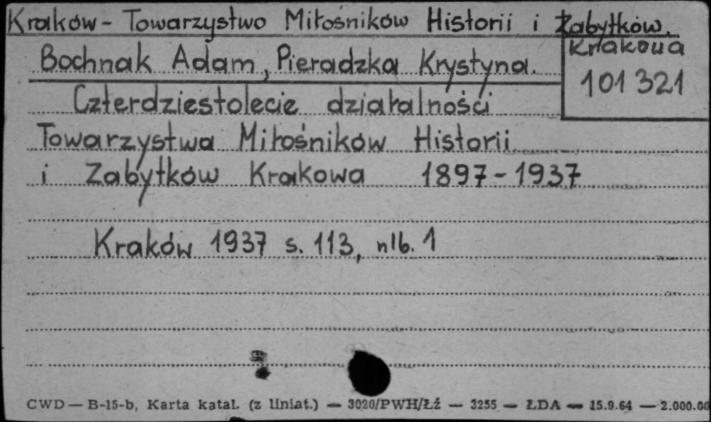 Kraków - Towarzystwo Miłośników Historii i Zabytków.
Krakowa
Bochnak Adam, Pieradzka Krystyna.
101 321
Czterdziestolecie działalności
Towarzystwa Miłośników Historii
i Zabytków Krakowa 1897-1937
Kraków 1937 s. 113, nlb. 1
CWD — B-15-b, Karta katal. (z liniat.) — 3020/PWH/Łź — 3255 — ŁDA — 15.9.64 — 2.000.00